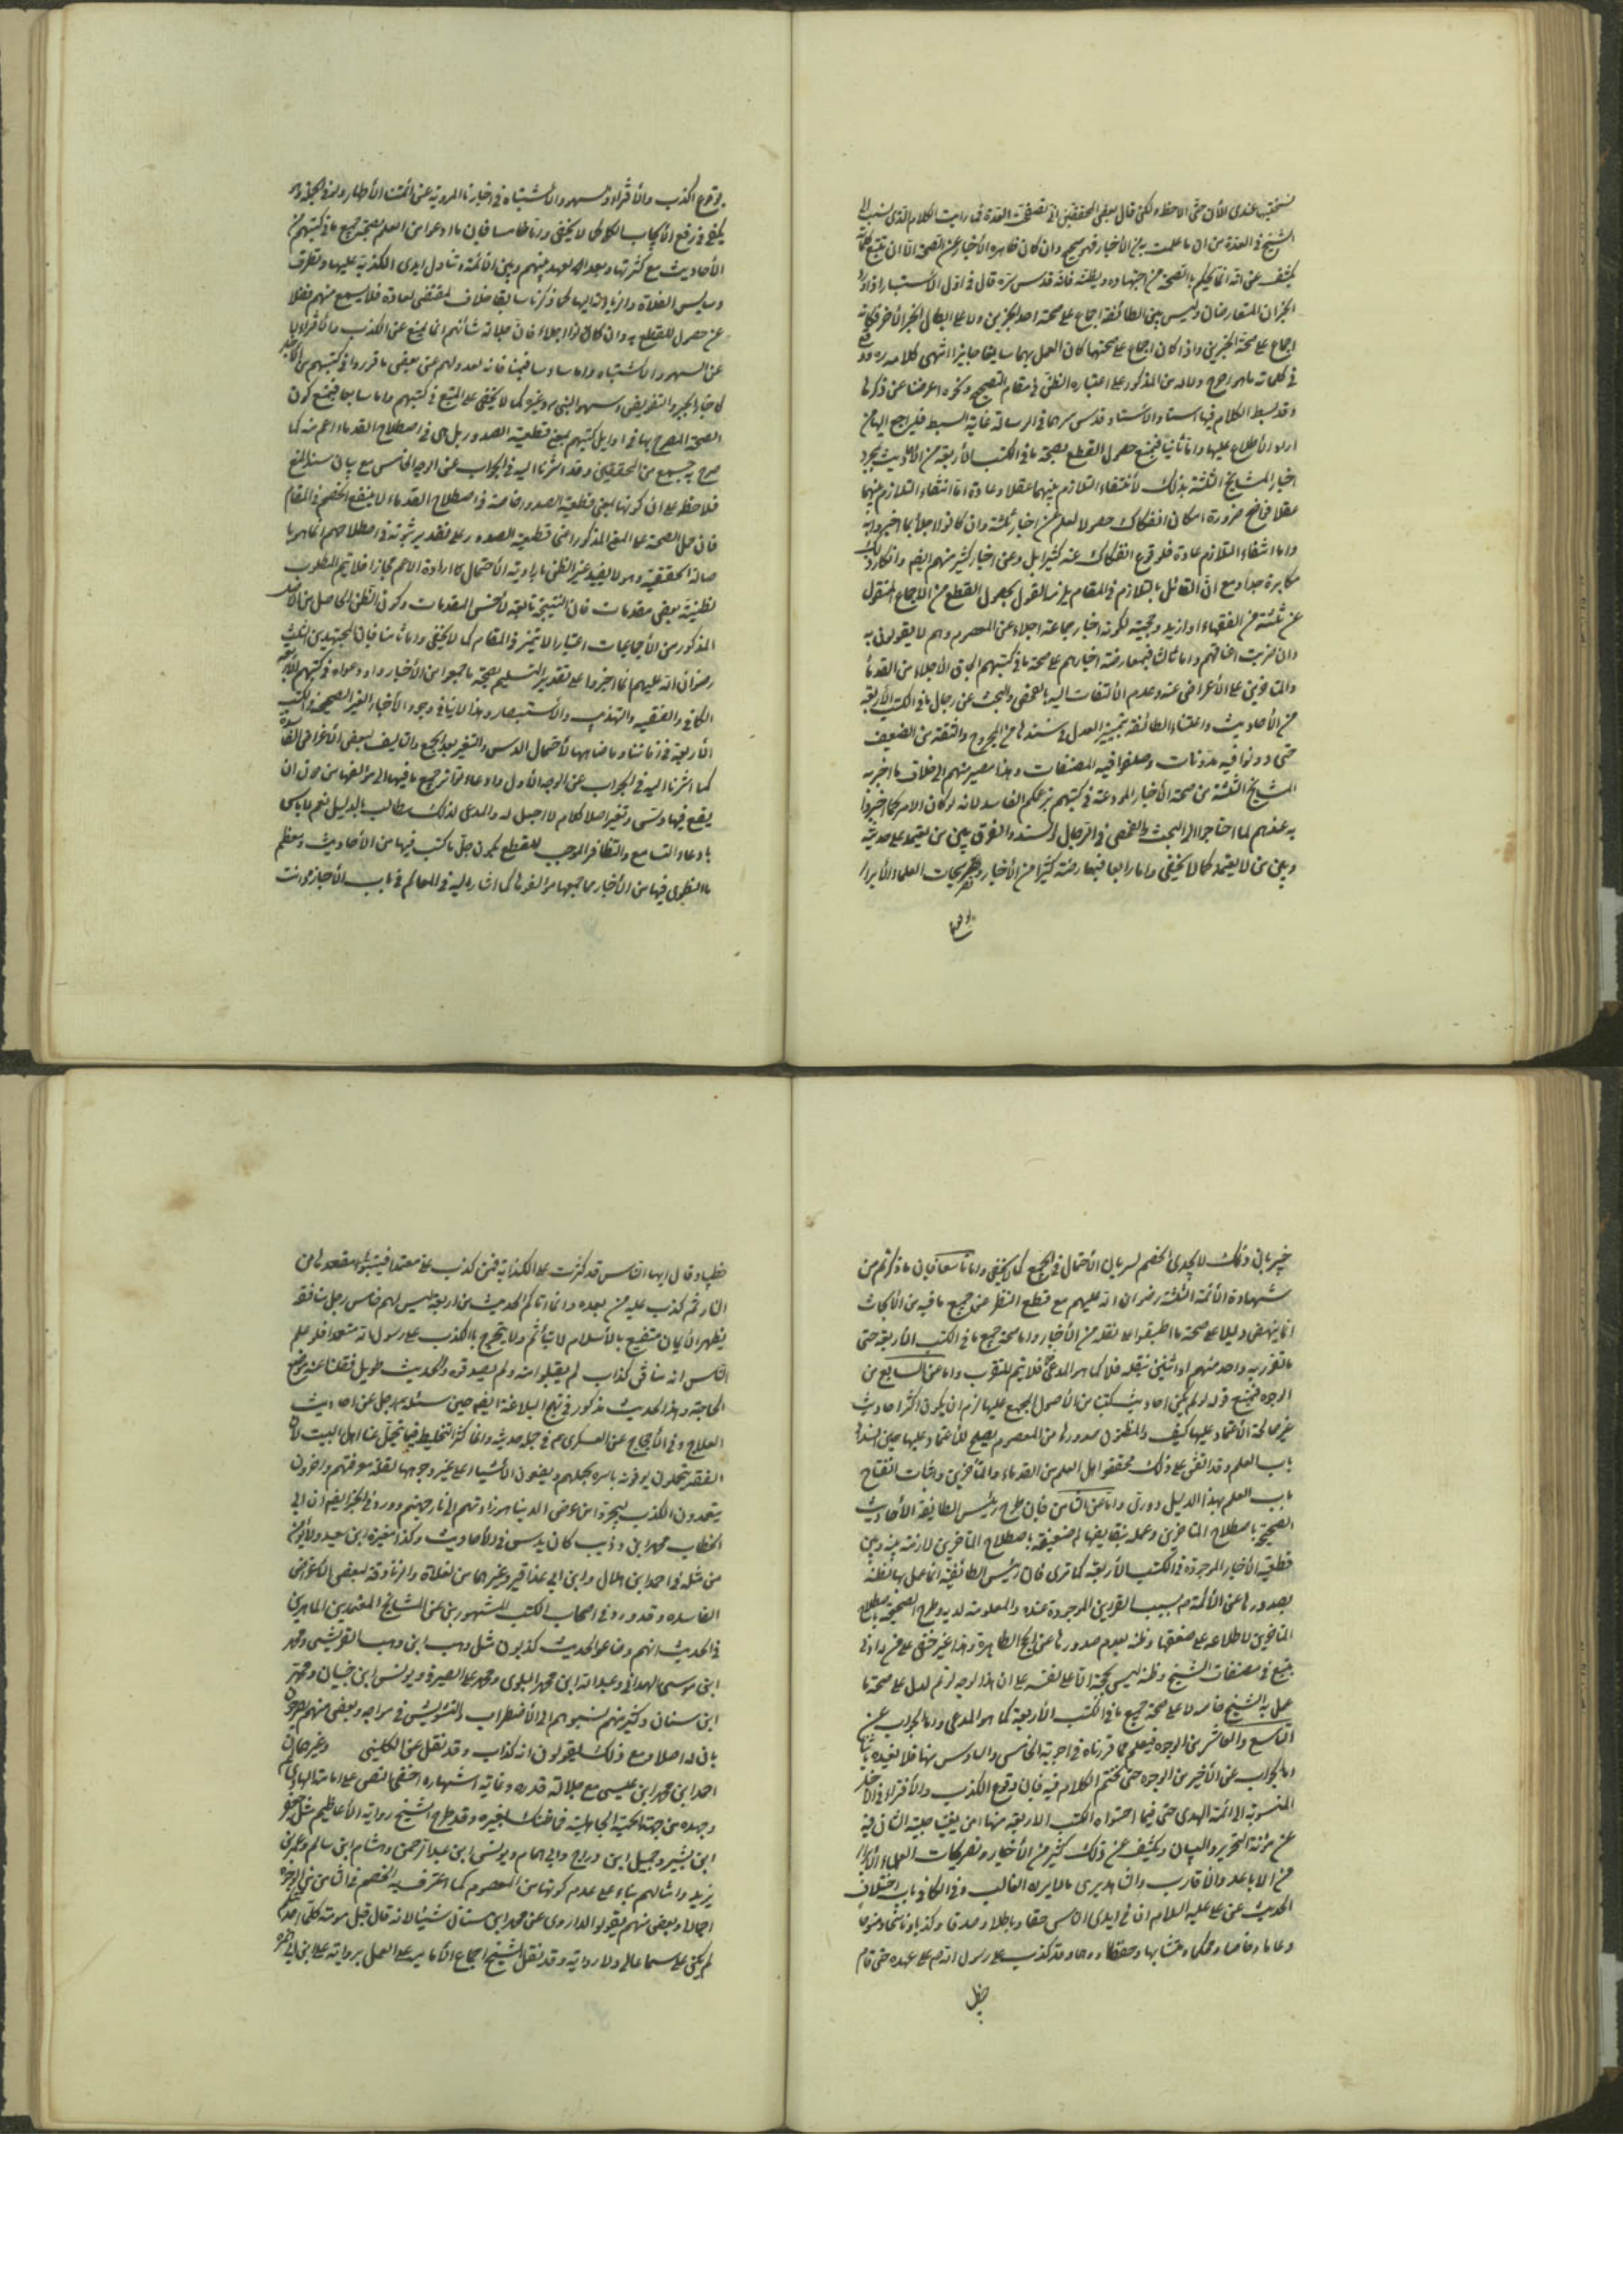 يستحقب عندى للأن حتى الاحظه ولكن قال بعض المحققين انى تصفحت العدة فما رايت الكلام الذى نسب الى
الشيخ فى العدة من ان ما عملت به من الأخبار فهو صحيح وان كان ظاهره الأخبار عن الصحة الا ان تتبع كلماته
يكشف عن انه انما يحكم بالصحة من اجتهاده وبظنه فانه قدس سره قال فى اول الاستبصار اذا ورد
الخبران المتعارضان وليس بين الطائفة اجماع على صحة احد الخبرين ولا على ابطال الخبر الأخر فكانه
اجماع على صحة الخبرين واذا كان اجماع على صحتهما كان العمل بهما سايغا جايزا انتهى كلامه
فى كلماته ما هو اوضح دلالة من المذكور على اعتباره الظن فى مقام التصحيح ونحوه اعرضنا عن ذكرها
وقد بسط الكلام فيها استاد الاستاد قدس سرهما فى الرسالة غاية البسط فليراجع اليها من
اراد الأطلاع عليها واما ثانيا فبمنع حصول القطع بصحة ما فى الكتب الأربعة من الأحاديث بمجرد
اخبار المشايخ الثلثة بذلك لأنتفاء التلازم بينهما عقلا وعادة اما انتفاء التلازم بينهما
عقلا فواضح ضرورة امكان انفكاك حصول العلم عن اخبار ثلثة وان كانوا اجلاء بما اخبروا به
واما انتفاء التلازم عادة فلوقوع انفكاك عنه كثيرا بل وعن اخبار كثير منهم ايضا وانكار ذلك
مكابرة جدا ومع ان القائل بالتلازم فى المقام يلزمه القول بحصول القطع من الاجماع المنقول
عن ثلثة من الفقهاء او ازيد وحجيته لكونه اخبار جماعة اجلاء عن المعصوم وهم لا يقولون به
وان حزبت اتفاقهم واما ثالثا فبمعارضة اخبارهم على صحة ما فى كتبهم الباقى الأجلاء من القدماء
والمتأخرين على الأعراض عنه وعدم الألتفات اليه بالفحص والبحث عن رجال ما فى الكتب الأربعة
من الأحاديث واعتناء الطائفة بتمييز العدل فى سندها من المجروح والثقة من الضعيف
حتى دونوا فيه مدونات وصنفوا فيه المصنفات وهذا مصير منهم الى خلاف ما اخبر به
المشايخ الثلثة من صحة الأخبار المودعة فى كتبهم بزعمكم الفاسد لانه لو كان الامر كما اخبروا
به عندهم لما احتاجوا الى البحث والفحص فى الرجال والسند والفرق بين من يعتمد على حديثه
وبين من لا يعتمد كما لا يخفى واما رابعا فبمعارضة كثيرا من الأخبار وتصريحات العلماء الأبرار
بوقوع
بوقوع الكذب والأفتراء والسهو والأشتباه فى اخبارنا المروية عن ائمتنا الأطهار ولو فى الجملة وهو
يكفى فى رفع الأيجاب الكلى كما لا يخفى واما خامسا فبان ما ادعوا من العلم بصحة جميع ما فى كتبهم من
الأحاديث مع كثرتها وبعد العهد بينهم وبين الأئمة وتداول ايدى الكذبة عليها وتطرق
وسايس الغلاة والزيادة اليها كما ذكرنا سابقا خلاف المقتضى العادة فلا يسمع منهم فضلا
عن حصول القطع به وان كانوا اجلاء فان جلالة شأنهم انما يمنع عن الكذب والأفتراء لا
عن السهو والاشتباه واما سادسا فبمنافاته لعدولهم عن بعض ما قرروا فى كتبهم من الأخبار
كاخبار الجبر والتفويض وسهو النبى ص وغيره كما لا يخفى على المتتبع فى كتبهم واما سابعا فبمنع كون
الصحة المصرح بها فى اوايل كتبهم بمعنى قطعية الصدور بل هى فى اصطلاح القدماء اعم منه كما
صرح به جمع من المحققين وقد اشرنا اليه فى الجواب عن الوجه الخامس مع بيان سند المنع
فلاحظ على ان كونها بمعنى قطعية الصدور خاصة فى اصطلاح القدماء لا ينفع الخصم فى المقام
فان حمل الصحة على المعنى المذكور اعنى قطعية الصدور على تقدير ثبوته فى اصطلاحهم انما هو با
صالة الحقيقة وهو لا يفيد غير الظن بارادته الأحتمال كارادة الأعم مجازا فلا يتم المطلوب
لظنية بعض مقدمات فان النتيجة تابعة لأخس المقدمات وكون الظن الحاصل من الأصل
المذكور من الأجماعيات اعتبارا لا يتميز فى المقام كما لا يخفى واما ثامنا فبان المجتهدين الثلث
رضوان الله عليهم انما اخبروا على تقدير التسليم بصحة ما جمعوا من الأخبار واودعواه فى كتبهم الأربعة
الكافى والفقيه والتهذيب والاستبصار وهذا لا ينافى وجود الأخبار الغير الصحيحة فى الكتب
الأربعة فى زماننا وما ضاهاها لأحتمال الدس والتغير بعد الجمع والتاليف لبعض الأغراض الفاسدة
كما اشرنا اليه فى الجواب عن الوجه الأول وادعاء تواتر جميع ما فيها الى مؤلفها من دون ان
يقع فيها دس وتغير اصلا كلام لا اصل له والمدعى لذلك مطالب بالدليل نعم لا باس
بادعاء التسامع والتظافر الموجب للقطع بكون جل ما كتب فيها من الأحاديث ومعظم
ما انطوى فيها من الأخبار مما جمعها مؤلفوها كما اشار اليه فى المعالم فى باب الأجازة وانت
خبير بان ذلك لا يجدى الخصم لسريان الأحتمال فى الجميع كما لا يخفى واما تاسعا فبان ما ذكرتم من
شهادة الأئمة الثلثة رضوان الله عليهم مع قطع النظر عن جميع ما فيه من الأبحاث
انما ينهض دليلا على صحة ما اطبقوا على نقله من الأخبار واما صحة جميع ما فى الكتب الأربعة حتى
ما تفرد به واحد منهم او اثنين بنقله فلا كما هو المدعى فلا يتم التقريب واما عن السابع من
الوجوه فبمنع قوله لو لم يكن احاديث كتبنا من الأصول المجمع عليها لزم ان يكون اكثر احاديث
غير صالحة الأعتماد عليها كيف والمظنون صدورها من المعصوم يصلح للأعتماد عليها حين انسداد
باب العلم وقد اتفق على ذلك محققوا اهل العلم من القدماء والمتأخرين واثبات انفتاح
باب العلم بهذا الدليل دورى واما عن الثامن فبان طرح رئيس الطائفة الأحاديث
الصحيحة باصطلاح المتاخرين وعمله بنقايضها الضعيفة باصطلاح المتاخرين لا زمة بينه وبين
قطعية الأخبار الموجودة فى الكتب الأربعة كما ترى فان رئيس الطائفة انما عمل بها لظنه
بصدورها عن الأئمة ع بسبب القراين الموجودة عنده والمعلومة لديه وطرح الصحيحة باصطلاح
المتاخرين لاطلاعه على ضعفها وظنه بعدم صدورها عن الحج الطاهرة وهذا غير خفى على من له ادنى
تتبع فى مصنفات الشيخ وظنه ليس بحجة الا على نفسه على ان هذا الوجه لو تم لدل على صحة ما
عمل به الشيخ خاصة لا على صحة جميع ما فى الكتب الأربعة كما هو المدعى واما الجواب عن
التاسع والعاشر من الوجوه فيعلم مما قررناه فى اجوبة الخامس والسادس منها فلا نعيده
اما الجواب عن الأخير من الوجوه حتى نختم الكلام فيه فبان وقوع الكذب والأفتراء فى الأخبار
المنسوبة الى ائمة الهدى حتى فيما احتواه الكتب الاربعة منها امر يغنينا جليته الشأن فيه
عن مؤنة التحرير والبيان ويكشف عن ذلك كثير من الأخبار وتصريحات العلماء الأبرار
من الاباعد والأقارب والشاهد يرى مالا يراه الغائب وفى الكافى باب اختلاف
الحديث عن على عليه السلام ان فى ايدى الناس حقا وباطلا وصدقا وكذبا وناسخا ومنسوخا
وعاما وخاصا ومحكما ومتشابها وحفظا ووهما وقد كذب على رسول الله ص على عهده حتى قام
خطيبا
خطيبا وقال ايها الناس قد كثرت على الكذابة فمن كذب على متعمدا فليتبوأ مقعده من
النار ثم كذب عليه من بعده وانما اتاكم الحديث من اربعة ليس لهم خامس رجل منافق
يظهر الأيمان متصنع بالأسلام لا يتأثم ولا يتحرج بالكذب على رسول الله متعمدا فلو علم
الناس انه منافق كذاب لم يقبلوا منه ولم يصدقوه والحديث طويل فنقلنا عنه موضع
الحاجة وهذا الحديث مذكور فى نهج البلاغة ايضا حين سئله رجل عن احاديث
العلاج وفى الأحتجاج عن العسكرى ع فى جملة حديثه وانما كثر التخليط فيما يتحمل عنا اهل البيت لأن
الفسقة يتحملون يحرفونه باسره بجهلهم ويضعون الأشياء على غير وجوهها لقلة معرفتهم واخرون
يتعمدون الكذب ليجروا من عرض الدنيا ما هو زادهم الى نار جهنم وورد فى الخبر ايضا ان ابى
الخطاب محمد ابن وذيب كان يدس فى الأحاديث وكذا مغيرة ابن سعيد
من مثله فى احمد ابن هلال وابن ابى عذاقير وغيرهما من الغلاة والزنادقة لبعض الأغراض
الفاسدة وقد ورد فى اصحاب الكتب المشهورين عن المشايخ المعتمدين الماهرين
فى الحديث انهم وضاعوا الحديث كذبون مثل وهب ابن وهب القرشى ومحمد
ابن موسى الهمدانى وعبد الله ابن محمد البلوى ومحمد على الصيرفى ويونس ابن ظبيان ومحمد
ابن سنان وكثير منهم نسبوهم الى الأضطراب والتشويش فى مراجه وبعض منهم يصرحون
بان له اصلا ومع ذلك يقولون انه كذاب وقد نقل عن الكلينى وغيره ان
احمد ابن محمد ابن عيسى مع جلالة قدره وغاية اشتهاره اخفى النص على امامة الهادى ع
وجحده من جهة الحمية الجاهلية فما ظنك بغيره وقد طرح الشيخ رواية الأعاظم مثل جعفر
ابن بشير وجميل ابن دراج وابى همام ويونس ابن عبد الرحمن وهشام ابن سالم وعمر ابن
يزيد وامثالهم بناء على عدم كونها من المعصوم كما اعترف به الخصم فى الثامن من الوجوه
اجمالا وبعض منهم يقولوا لا نروى عن محمد ابن سنان شيئا لانه قال قبل موته كلما احدثكم
لم يكن على سماعا لى ولا رواية وقد نقل الشيخ اجماع الأمامية على العمل برواية على ابن ابى حمزة